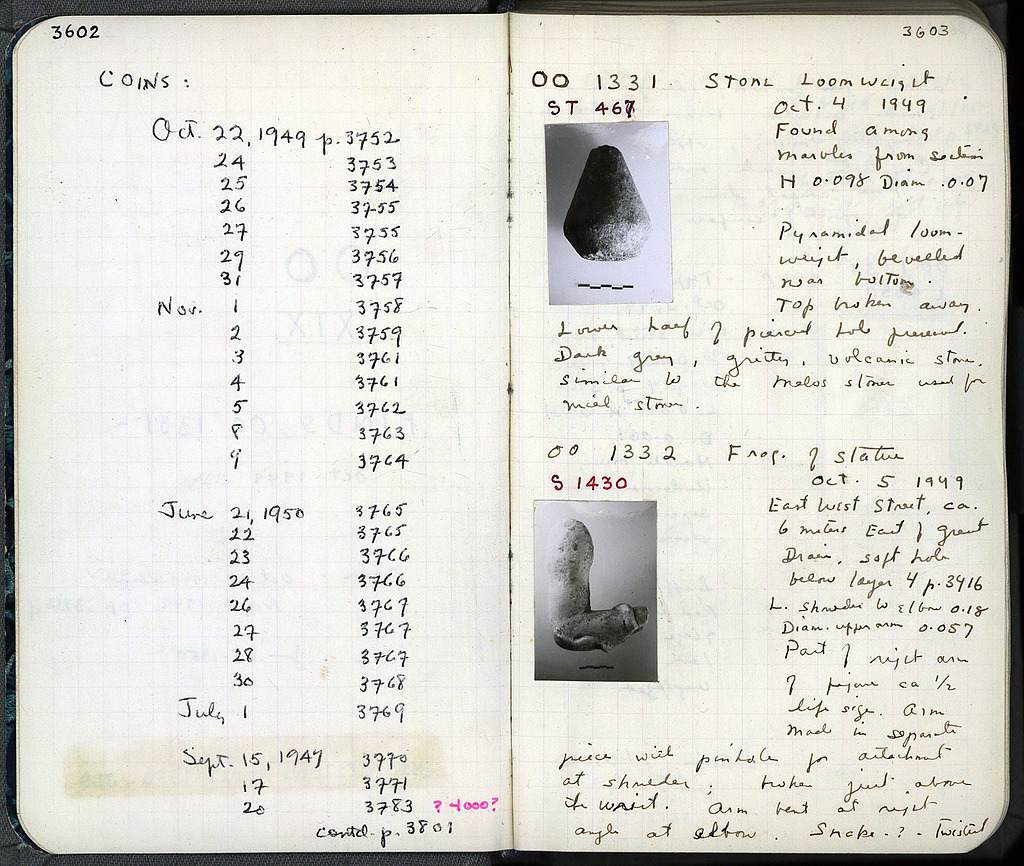 3602
COINS :
Oct. 22, 1949 p. 3752
24 3753
25 3754
26 3755
27 3755
29 3756
31 3757
Nov. 1 3758
2 3759
3 3761
4 3761
5 3762
8 3763
9 3764
June 21, 1950 3765
22 3765
23 3766
24 3766
26 3767
27 3767
28 3767
30 3768
July 1 3769
Sept. 15, 1947 3770
17 3771
20 3783 ? -1000?
contd. p. 3801
3603
OO 1331. Stone Loomweight
ST 467
Oct. 4 1949
Found among
marbles from section
H 0.098 Diam .0.07
Pyramidal loom-
weight, bevelled
near bottom.
Top broken away.
Lower half of pierced hole present.
Dark gray, gritty, volcanic stone,
similar to the Melos stone used for
mill stones.
OO 1332 Frag. of statue
S 1430
Oct. 5 1949
East West Street, ca.
6 meters East of great
Drain, soft hole
below layer 4 p. 3916
L. shoulder to elbow 0.18
Diam. upper arm 0.057
Part of right arm
of figure ca 1/2
life size. Arm
made in separate
piece with pinhole for attachment
at shoulder; broken just above
the wrist. Arm bent at right
angle at elbow. Snake - ? - Twisted